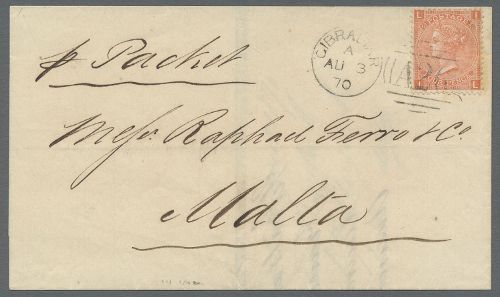 p Packet
GIBRALTAR
A
AU 3
70
A26
L I
I L
Messrs. Raphael Ferro & Co.
Malta